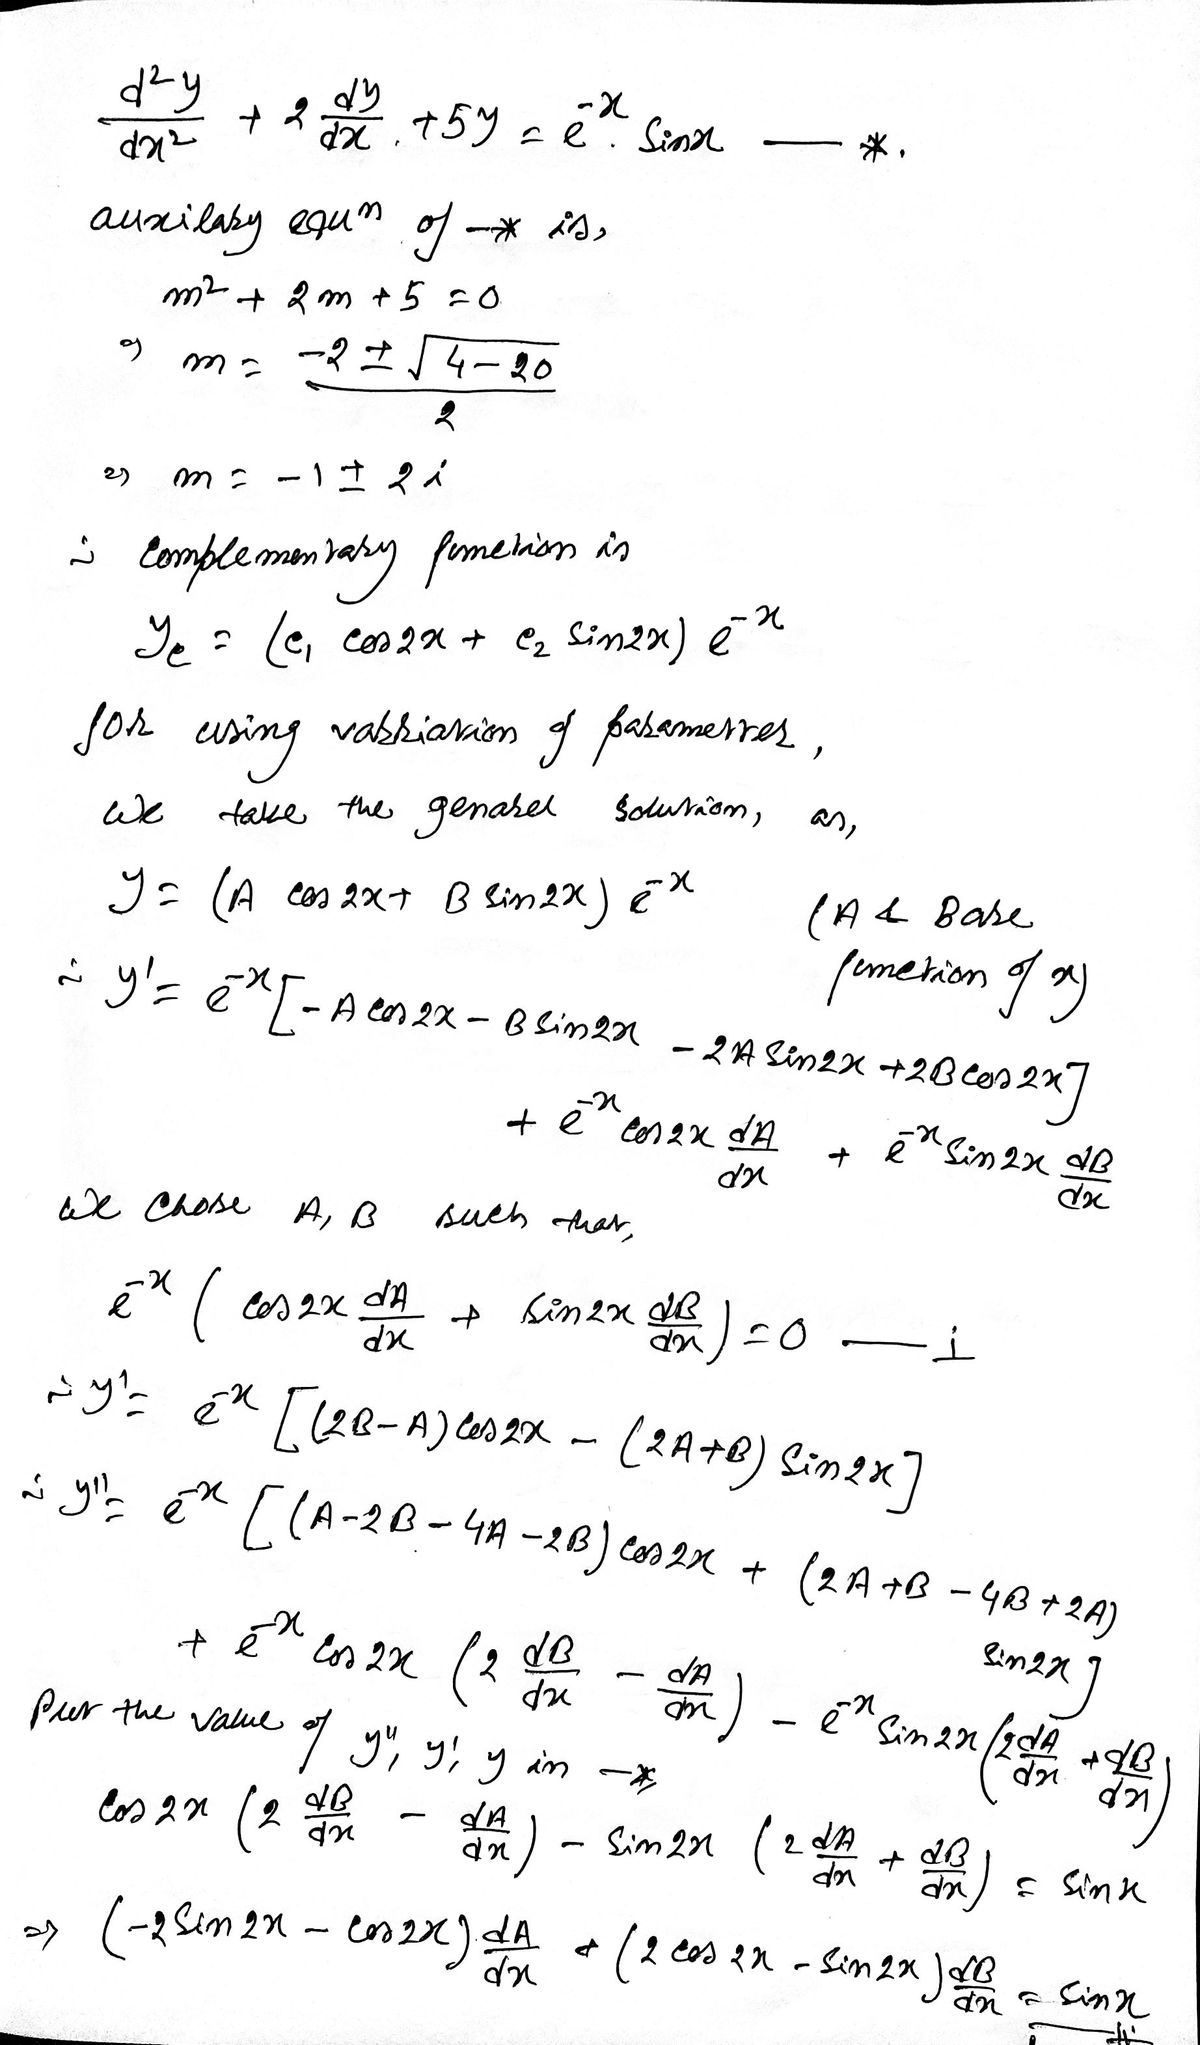 d²y/dx² + 2 dy/dx . +5y = e^-x . Sinx — *.
auxilary equn of —* is,
m² + 2m + 5 = 0
⇒ m = (-2 ± √(4-20))/2
⇒ m = -1 ± 2i
∴ Complementary function is
y_c = (c₁ cos2x + c₂ Sin2x) e^-x
for using varriation of parametrer,
we take the genarel solution, as,
y = (A cos 2x + B Sin2x) e^-x (A & B are
function of x)
∴ y' = e^-x [-A cos 2x - B Sin2x - 2A Sin2x + 2B cos 2x]
+ e^-x cos 2x dA/dx + e^-x Sin 2x dB/dx
we chose A, B such that,
e^-x ( cos 2x dA/dx + Sin 2x dB/dx ) = 0 — i
∴ y' = e^-x [(2B-A) cos 2x - (2A+B) Sin 2x]
∴ y'' = e^-x [(A-2B-4A-2B) cos 2x + (2A+B-4B+2A)
Sin2x]
+ e^-x cos 2x (2 dB/dx - dA/dx) - e^-x Sin 2x (2 dA/dx + dB/dx)
Put the value of y'', y', y in —*,
cos 2x (2 dB/dx - dA/dx) - Sin 2x (2 dA/dx + dB/dx) = Sin x
⇒ (-2 Sin 2x - cos 2x) . dA/dx + (2 cos 2x - Sin 2x) dB/dx = Sin x
— ii